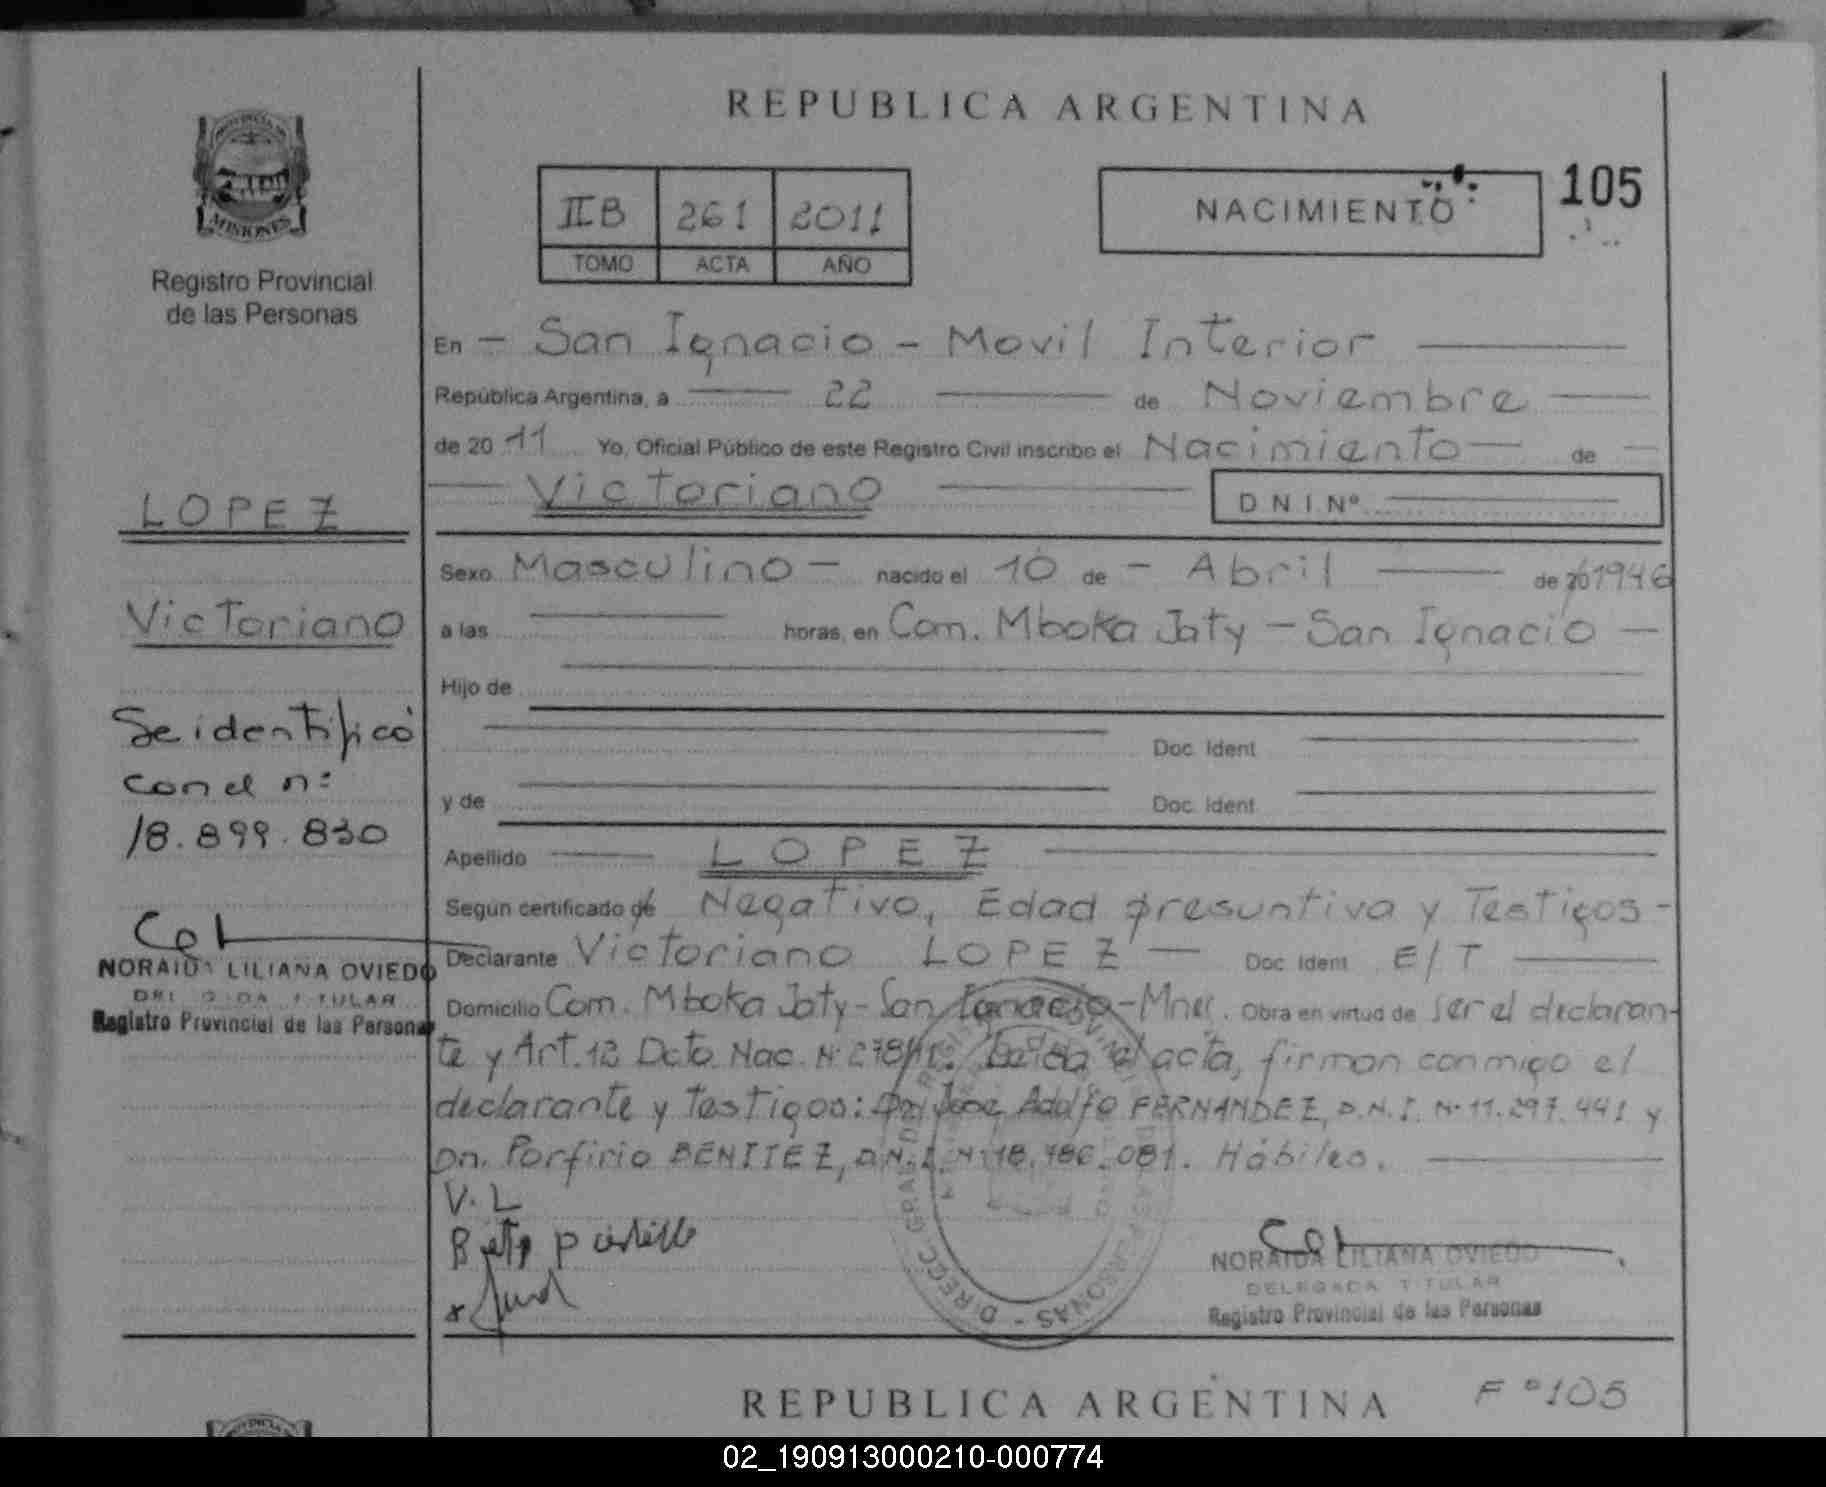 REPUBLICA ARGENTINA
PROVINCIA DE
MISIONES
Registro Provincial
de las Personas
IIB 261 2011
TOMO ACTA AÑO
NACIMIENTO
105
En - San Ignacio - Movil Interior
República Argentina, a 22 de Noviembre
de 20 11 Yo, Oficial Público de este Registro Civil inscribo el Nacimiento de
Victoriano
D N I Nº
LOPEZ
Victoriano
Se identificó
con el nº
18.899.830
NORAIDA LILIANA OVIEDO
DELEGADA TITULAR
Registro Provincial de las Personas
Sexo Masculino - nacido el 10 de - Abril de 20 1946
a las horas, en Com. Mboka Jaty - San Ignacio -
Hijo de
Doc. Ident
y de Doc. Ident
Apellido LOPEZ
Según certificado de Negativo, Edad presuntiva y Testigos -
Declarante Victoriano LOPEZ - Doc Ident E/T
Domicilio Com. Mboka Jaty - San Ignacio - Mnes. Obra en virtud de ser el declaran-
te y Art. 12 Dcto Nac. Nº 278/11. Leída el acta, firman conmigo el
declarante y testigos: Dn José Adolfo FERNANDEZ, D.N.I. Nº 11.297.441 y
Dn. Porfirio BENITEZ, D.N.I. Nº 18.786.081. Hábiles.
V. L
NORAIDA LILIANA OVIEDO
DELEGADA TITULAR
Registro Provincial de las Personas
REPUBLICA ARGENTINA
Fº 105
02_190913000210-000774